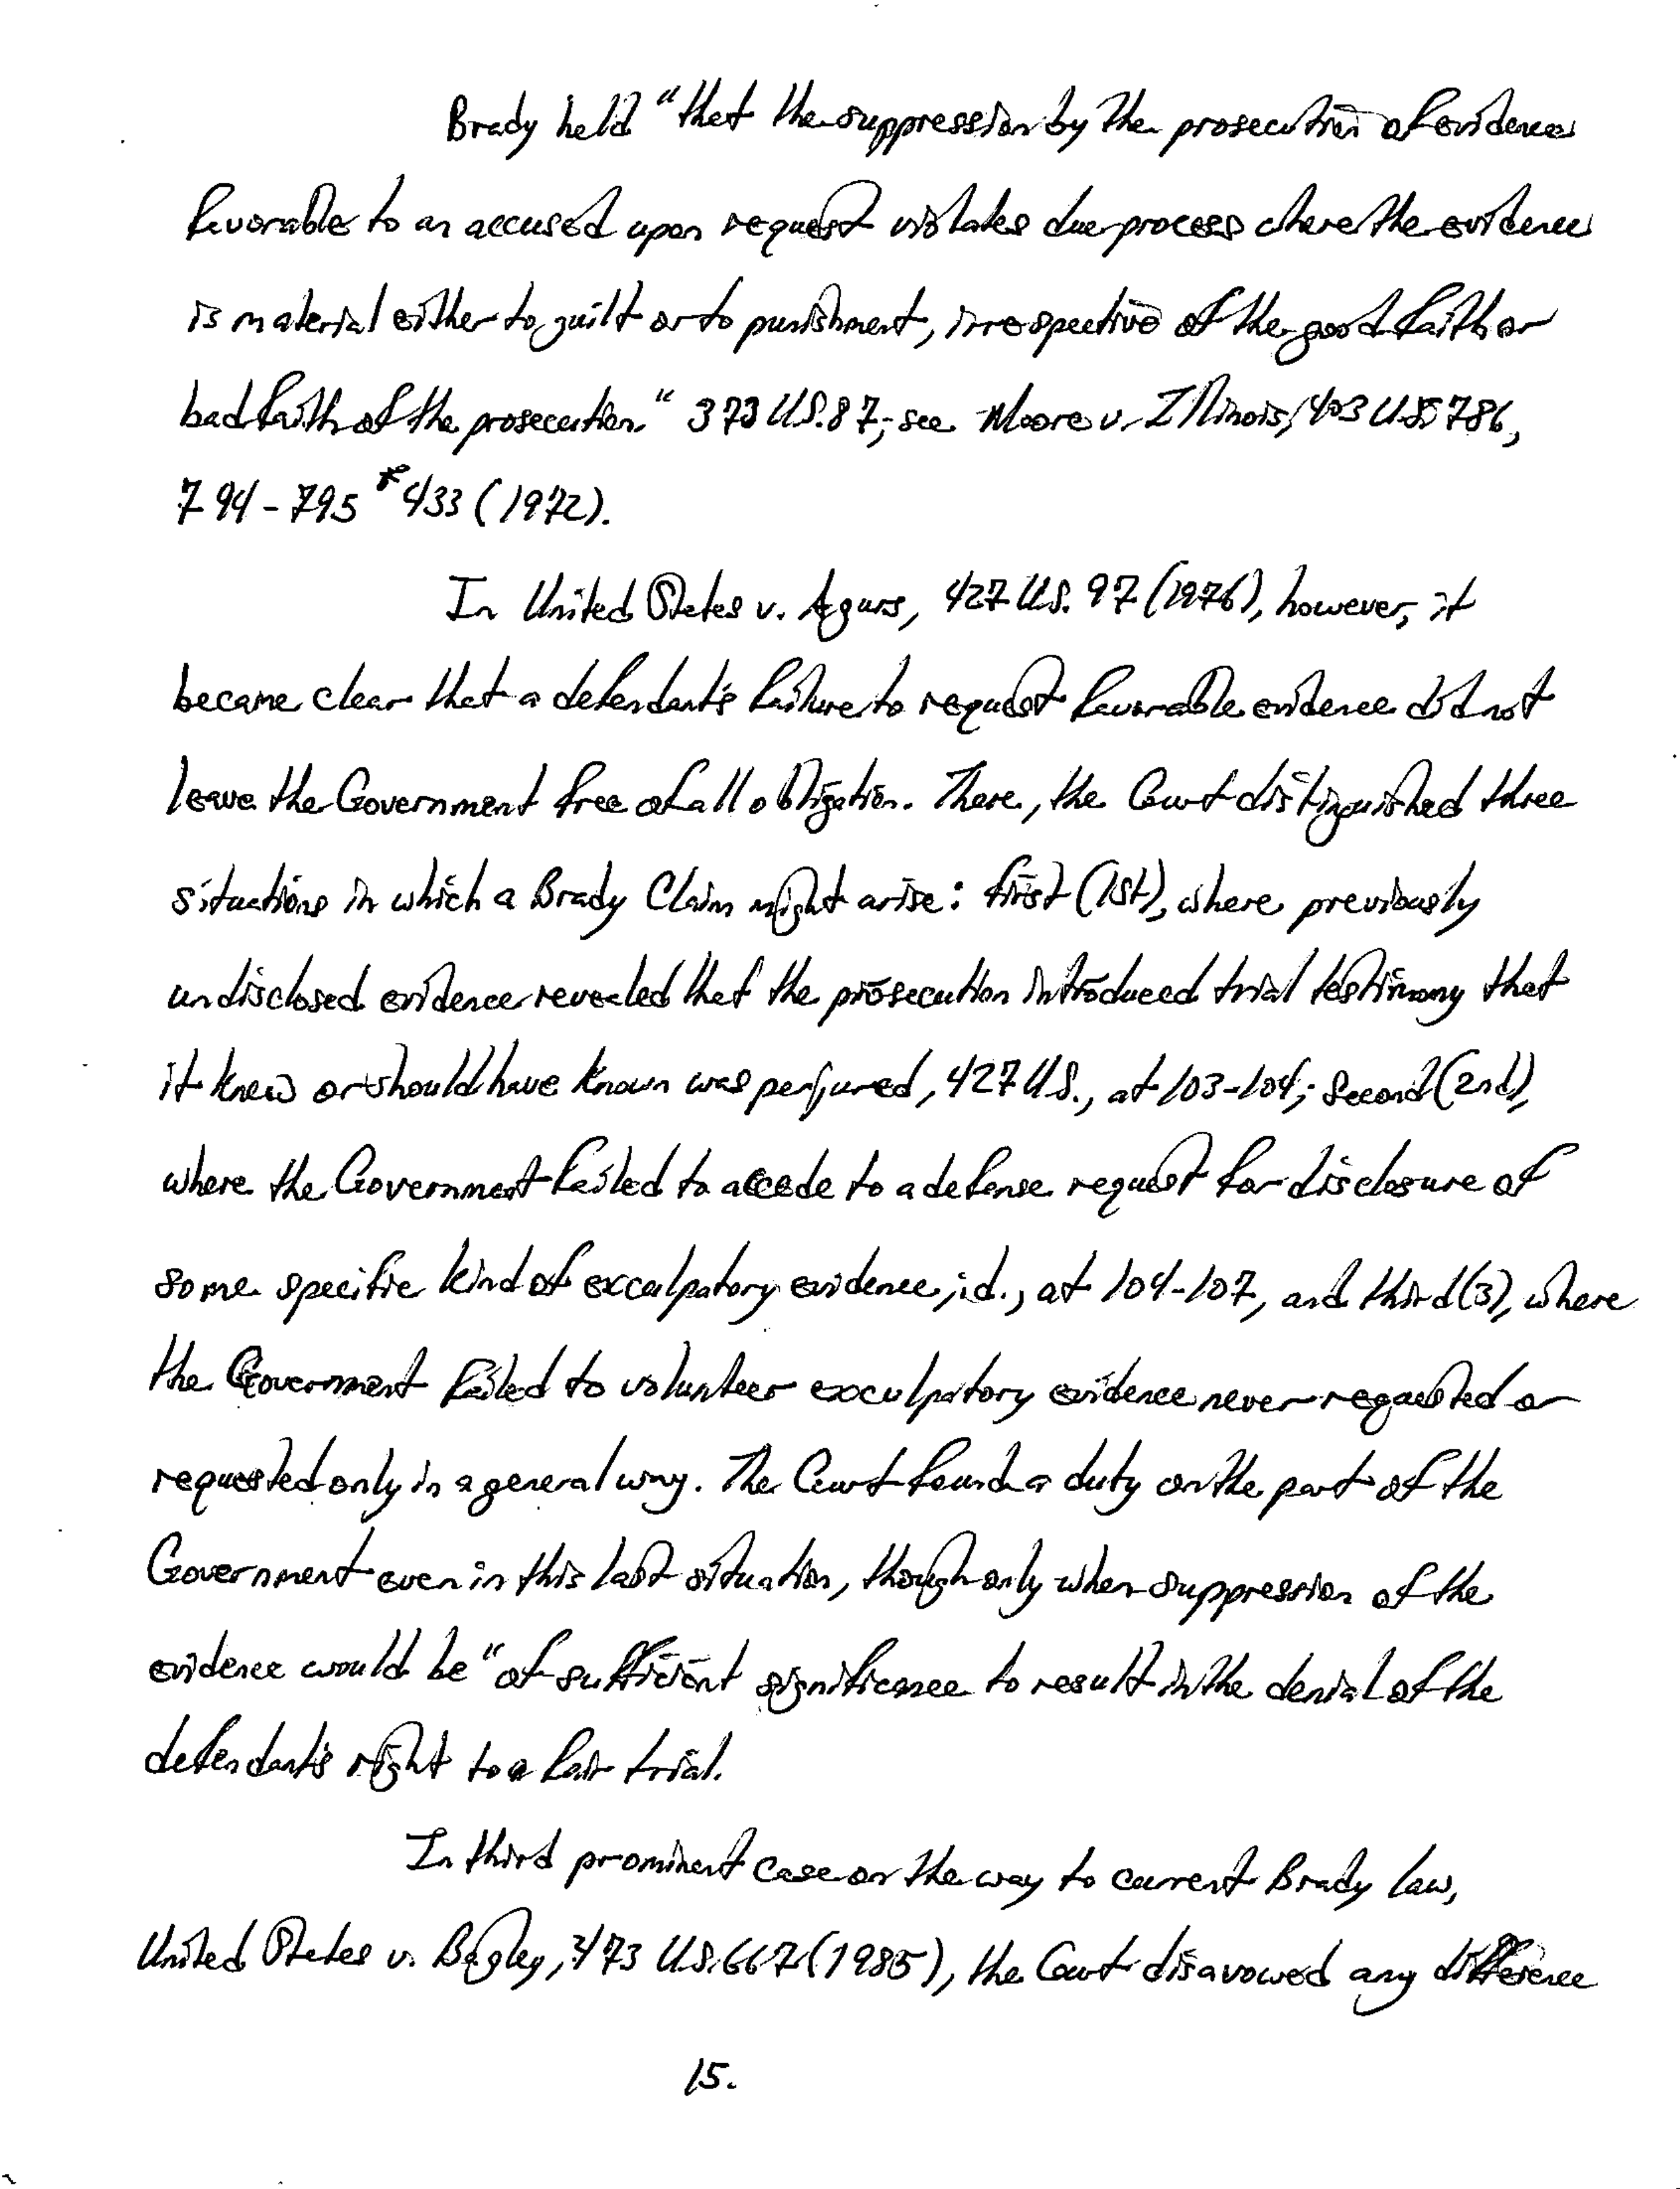 Brady held "that the suppression by the prosecution of evidence
favorable to an accused upon request violates due process where the evidence
is material either to guilt or to punishment, irrespective of the good faith or
bad faith of the prosecution." 373 U.S. 87; see Moore v. Illinois, 403 U.S. 786,
794-795 *433 (1972).
In United States v. Agurs, 427 U.S. 97 (1976), however, it
became clear that a defendant's failure to request favorable evidence did not
leave the Government free of all obligation. There, the Court distinguished three
situations in which a Brady Claim might arise: first (1st), where previously
undisclosed evidence revealed that the prosecution introduced trial testimony that
it knew or should have known was perjured, 427 U.S., at 103-104; Second (2nd),
where the Government failed to accede to a defense request for disclosure of
some specific kind of exculpatory evidence, id., at 104-107, and third (3), where
the Government failed to volunteer exculpatory evidence never requested or
requested only in a general way. The Court found a duty on the part of the
Government even in this last situation, though only when suppression of the
evidence would be "of sufficient significance to result in the denial of the
defendant's right to a fair trial.
In third prominent case on the way to current Brady law,
United States v. Bagley, 473 U.S. 667 (1985), the Court disavowed any difference
15.